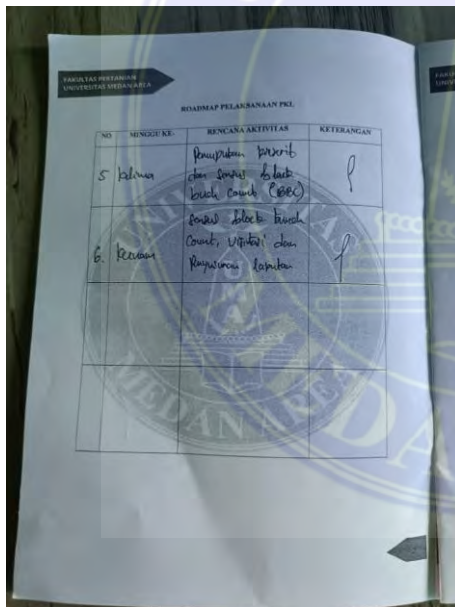 FAKULTAS PERTANIAN
UNIVERSITAS MEDAN AREA
ROADMAP PELAKSANAAN PKL
NO MINGGU KE- RENCANA AKTIVITAS KETERANGAN
5 kelima
Pemupukan kiserit
dan sensus black
bunch Count (BBC)
6. Keenam
Sensus black bunch
Count, visitasi dan
Penyusunan laporan
UNIVERSITAS
MEDAN AREA